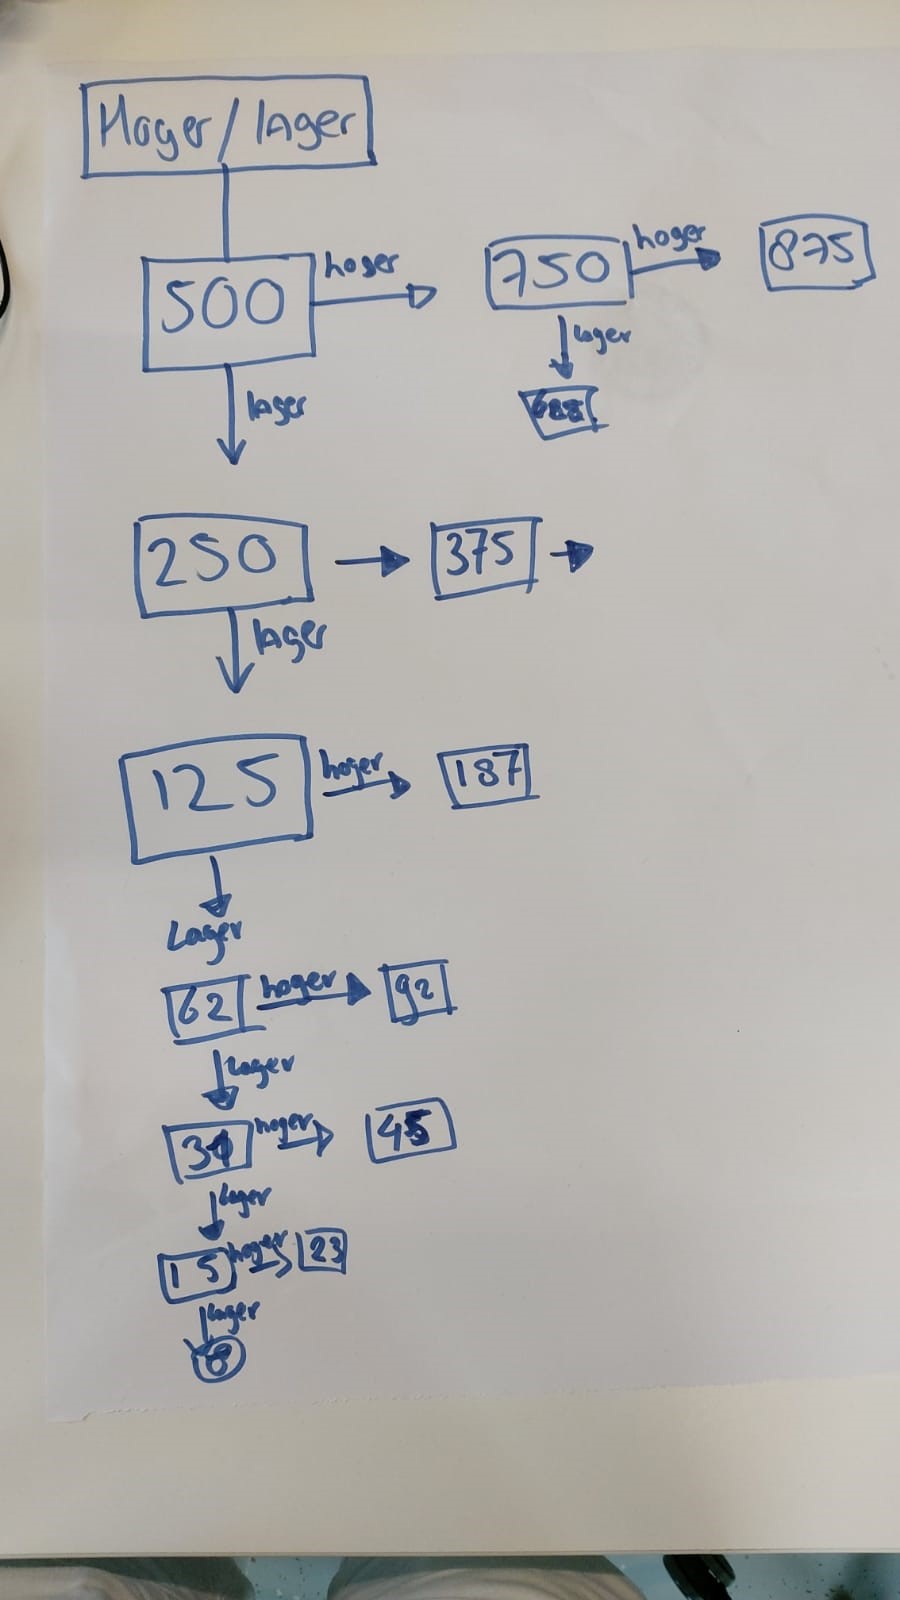 Hoger / lager
500
hoger
750
hoger
875
lager
lager
250
375
lager
125
hoger
187
Lager
62
hoger
92
lager
31
hoger
45
lager
15
hoger
23
lager